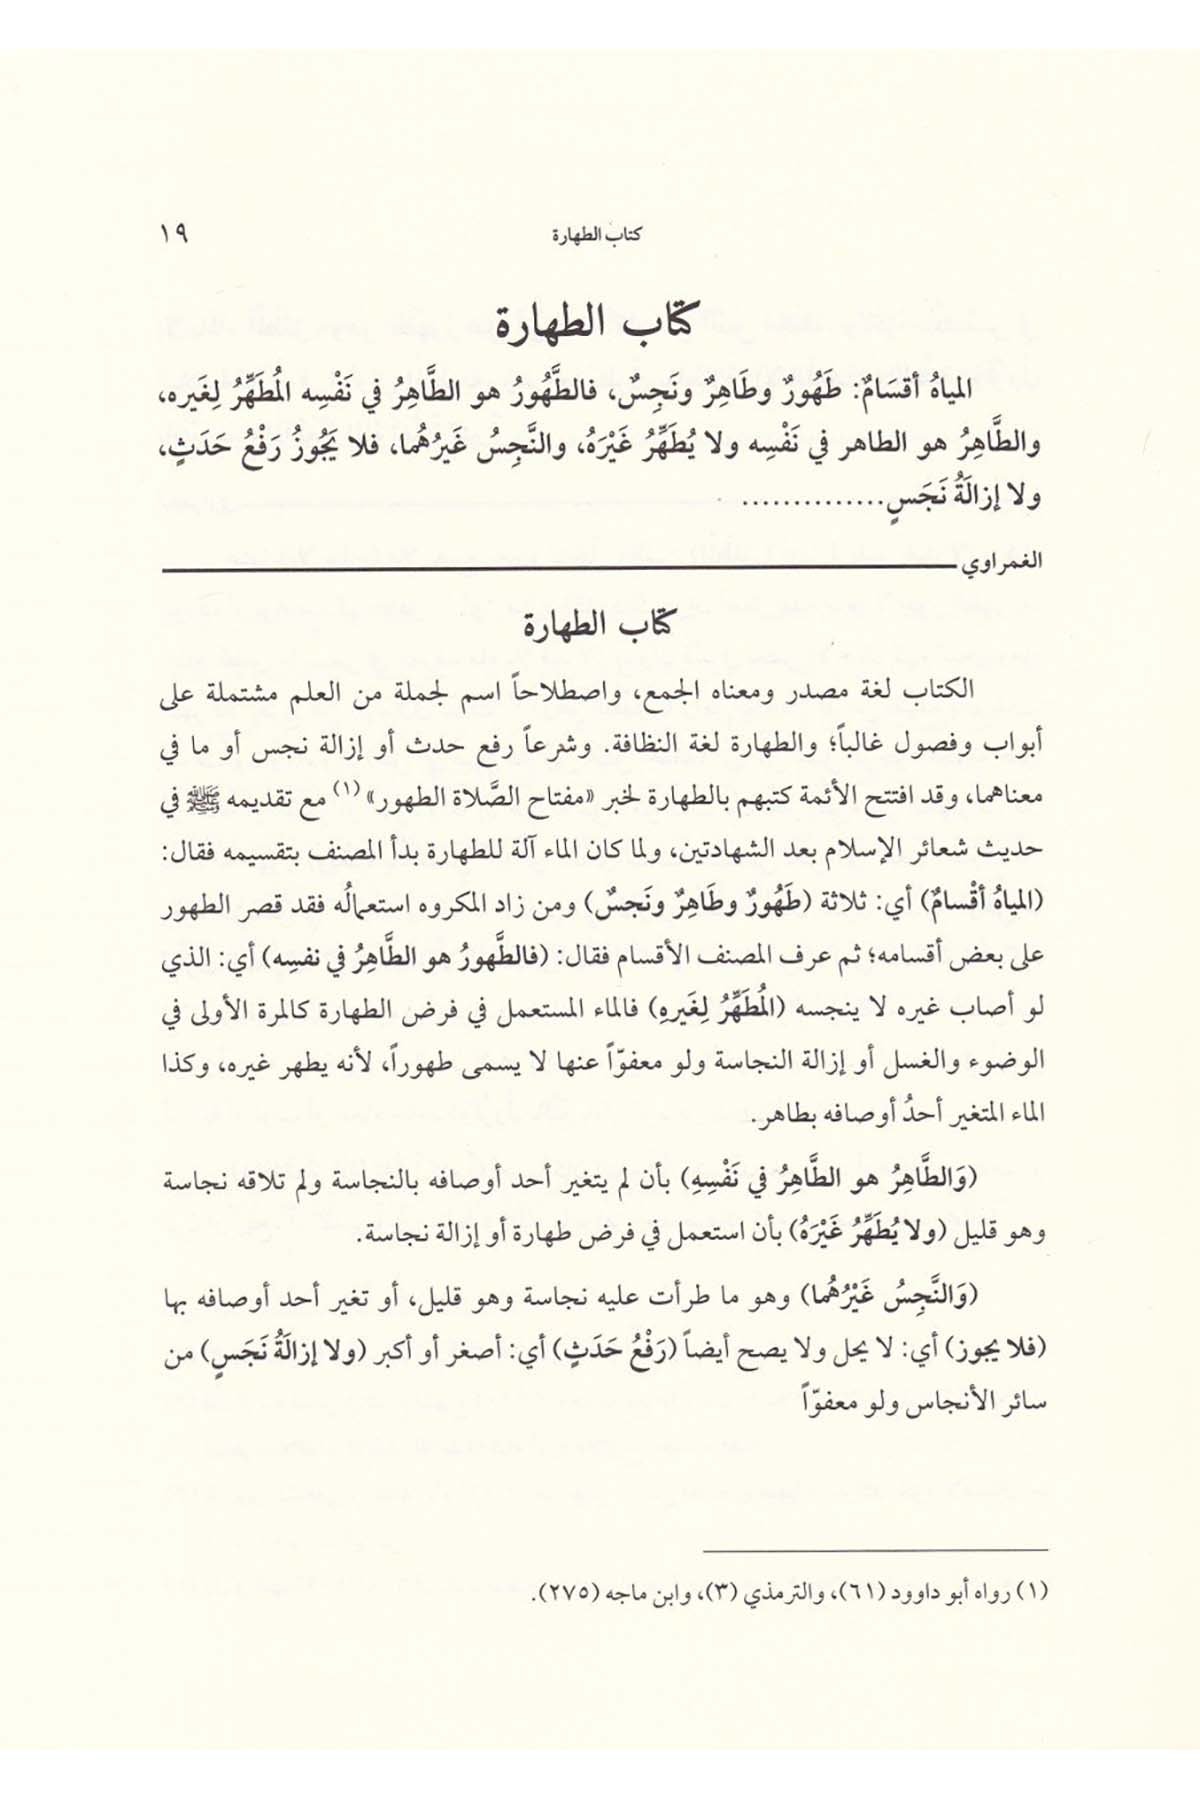 كتاب الطهارة
١٩
كتاب الطهارة
المياهُ أقسَامٌ: طَهُورٌ وطَاهِرٌ ونَجِسٌ، فالطَّهُورُ هو الطَّاهِرُ في نَفْسِه المُطَهِّرُ لِغَيره،
والطَّاهِرُ هو الطاهر في نَفْسِه ولا يُطَهِّرُ غَيْرَهُ، والنَّجِسُ غَيرُهُما، فلا يَجُوزُ رَفْعُ حَدَثٍ،
ولا إزالَةُ نَجَسٍ...............
الغمراوي
كتاب الطهارة
الكتاب لغة مصدر ومعناه الجمع، واصطلاحاً اسم لجملة من العلم مشتملة على
أبواب وفصول غالباً؛ والطهارة لغة النظافة. وشرعاً رفع حدث أو إزالة نجس أو ما في
معناهما، وقد افتتح الأئمة كتبهم بالطهارة لخبر «مفتاح الصَّلاة الطهور» (١) مع تقديمه ﷺ في
حديث شعائر الإسلام بعد الشهادتين، ولما كان الماء آلة للطهارة بدأ المصنف بتقسيمه فقال:
(المياهُ أقْسامٌ) أي: ثلاثة (طَهُورٌ وطَاهِرٌ ونَجسٌ) ومن زاد المكروه استعمالُه فقد قصر الطهور
على بعض أقسامه؛ ثم عرف المصنف الأقسام فقال: (فالطَّهورُ هو الطَّاهِرُ في نفسِه) أي: الذي
لو أصاب غيره لا ينجسه (المُطَهِّرُ لِغَيرِهِ) فالماء المستعمل في فرض الطهارة كالمرة الأولى في
الوضوء والغسل أو إزالة النجاسة ولو معفوّاً عنها لا يسمى طهوراً، لأنه يطهر غيره، وكذا
الماء المتغير أحدُ أوصافه بطاهر.
(وَالطَّاهِرُ هو الطَّاهِرُ في نَفْسِهِ) بأن لم يتغير أحد أوصافه بالنجاسة ولم تلاقه نجاسة
وهو قليل (ولا يُطَهِّرُ غَيْرَهُ) بأن استعمل في فرض طهارة أو إزالة نجاسة.
(وَالنَّجِسُ غَيْرُهُما) وهو ما طرأت عليه نجاسة وهو قليل، أو تغير أحد أوصافه بها
(فلا يجوز) أي: لا يحل ولا يصح أيضاً (رَفْعُ حَدَثٍ) أي: أصغر أو أكبر (ولا إزالَةُ نَجَسٍ) من
سائر الأنجاس ولو معفوّاً
(١) رواه أبو داوود (٦١)، والترمذي (٣)، وابن ماجه (٢٧٥).